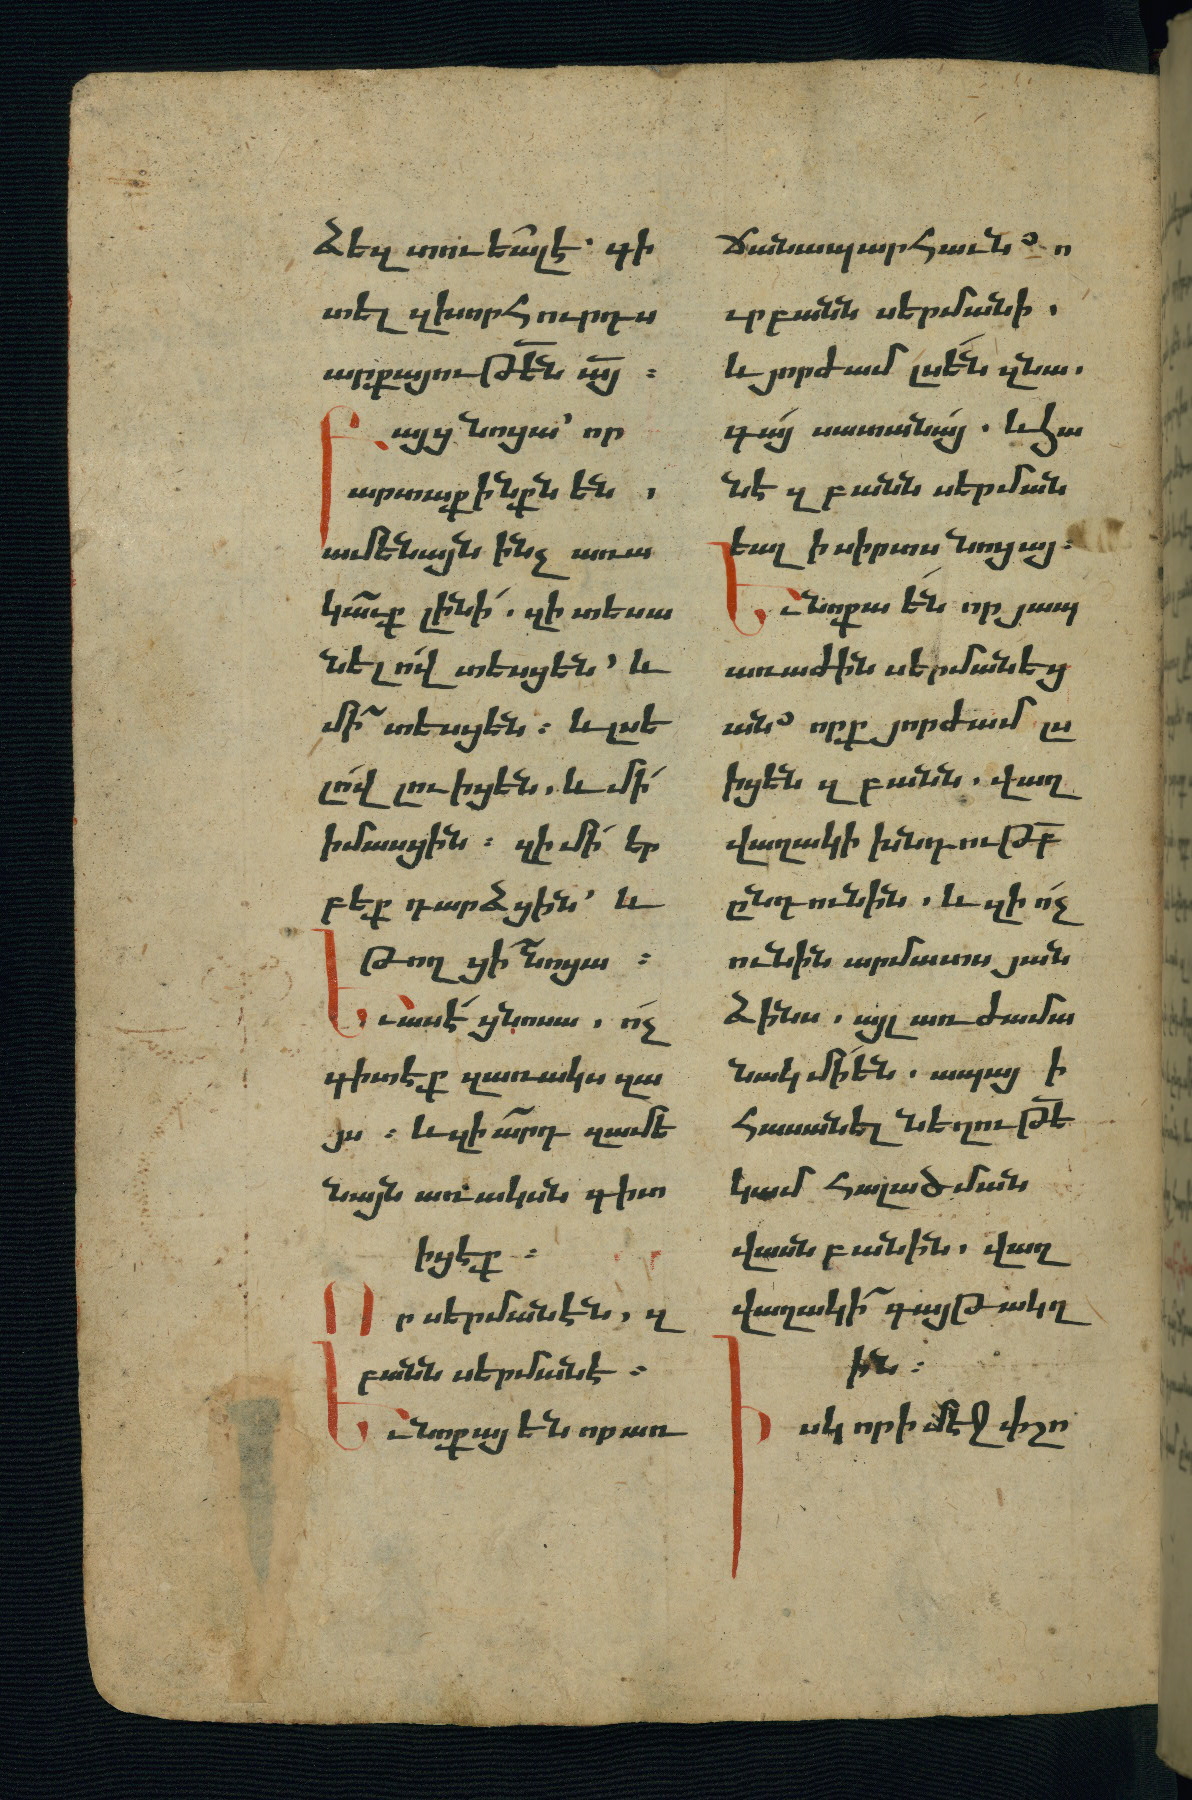 Ձեզ տուեալ է՝ գի
տել զխորհուրդս
արքայութե̅ն ա̅յ ։
Բայց նոցա՝ որ
արտաքինքն են ,
ամենայն ինչ առա
կաւք լինի՛ . զի տեսա
նելո՛վ տեսցեն՝ և
մի՛ տեսցեն ։ և լսե
լո՛վ լուիցեն . և մի՛
իմասցին ։ զի մի՛ եր
բեք դարձցին՝ և
թողցի՛ նոցա ։
Եւ ասէ՛ ցնոսա . ո՛չ
գիտէք զառակս զա
յս ։ և զիա՛րդ զամե
նայն առակսն գիտ
իցէք ։
Որ սերմանէն , զ
բանն սերմանէ ։
Եւ նոքայ են որ առ
ճանապարհաւն՝ ո
ւր բանն սերմանի ,
և յորժամ լսե՛ն զնա .
գա՛յ սատանա՛յ . և հա
նէ զբանն սերման
եալ ի սիրտս նոցայ ։
Եւ նոքա ե՛ն որ յապ
առաժին սերմանեց
ան՝ որք յորժամ լս
իցեն զբանն . վաղ
վաղակի խնդութ̅բ
ընդունին . և զի ո՛չ
ունին արմատս յան
ձինս . այլ առ ժամա
նակ մի՛ են . ապայ ի
հասանել նեղութ̅ե
կամ հալածման
վասն բանին . վաղ
վաղակի՛ գայթակղ
ին ։
Իսկ որ ի մէջ փշո